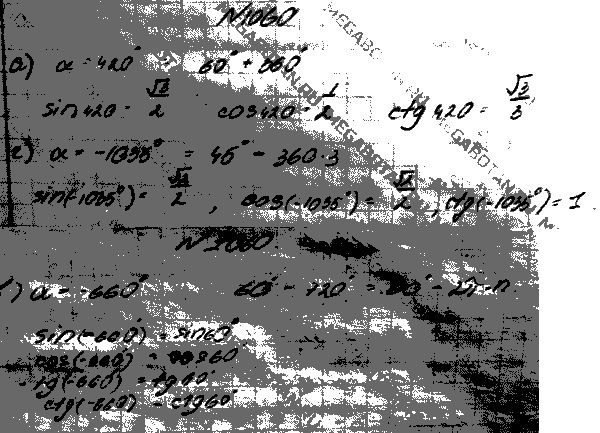 N1060
а) α = 420° = 60° + 360°
sin 420 = √3/2 cos 420 = 1/2 ctg 420 = √3/3
г) α = -1035° = 45° - 360·3
sin(-1035°) = √2/2, cos(-1035°) = √2/2, ctg(-1035°) = 1
N1060
α = -660° 60° - 720° =
sin(-660) = sin60°
cos(-660) = cos60°
tg(-660) = tg60°
ctg(-660) = ctg60°